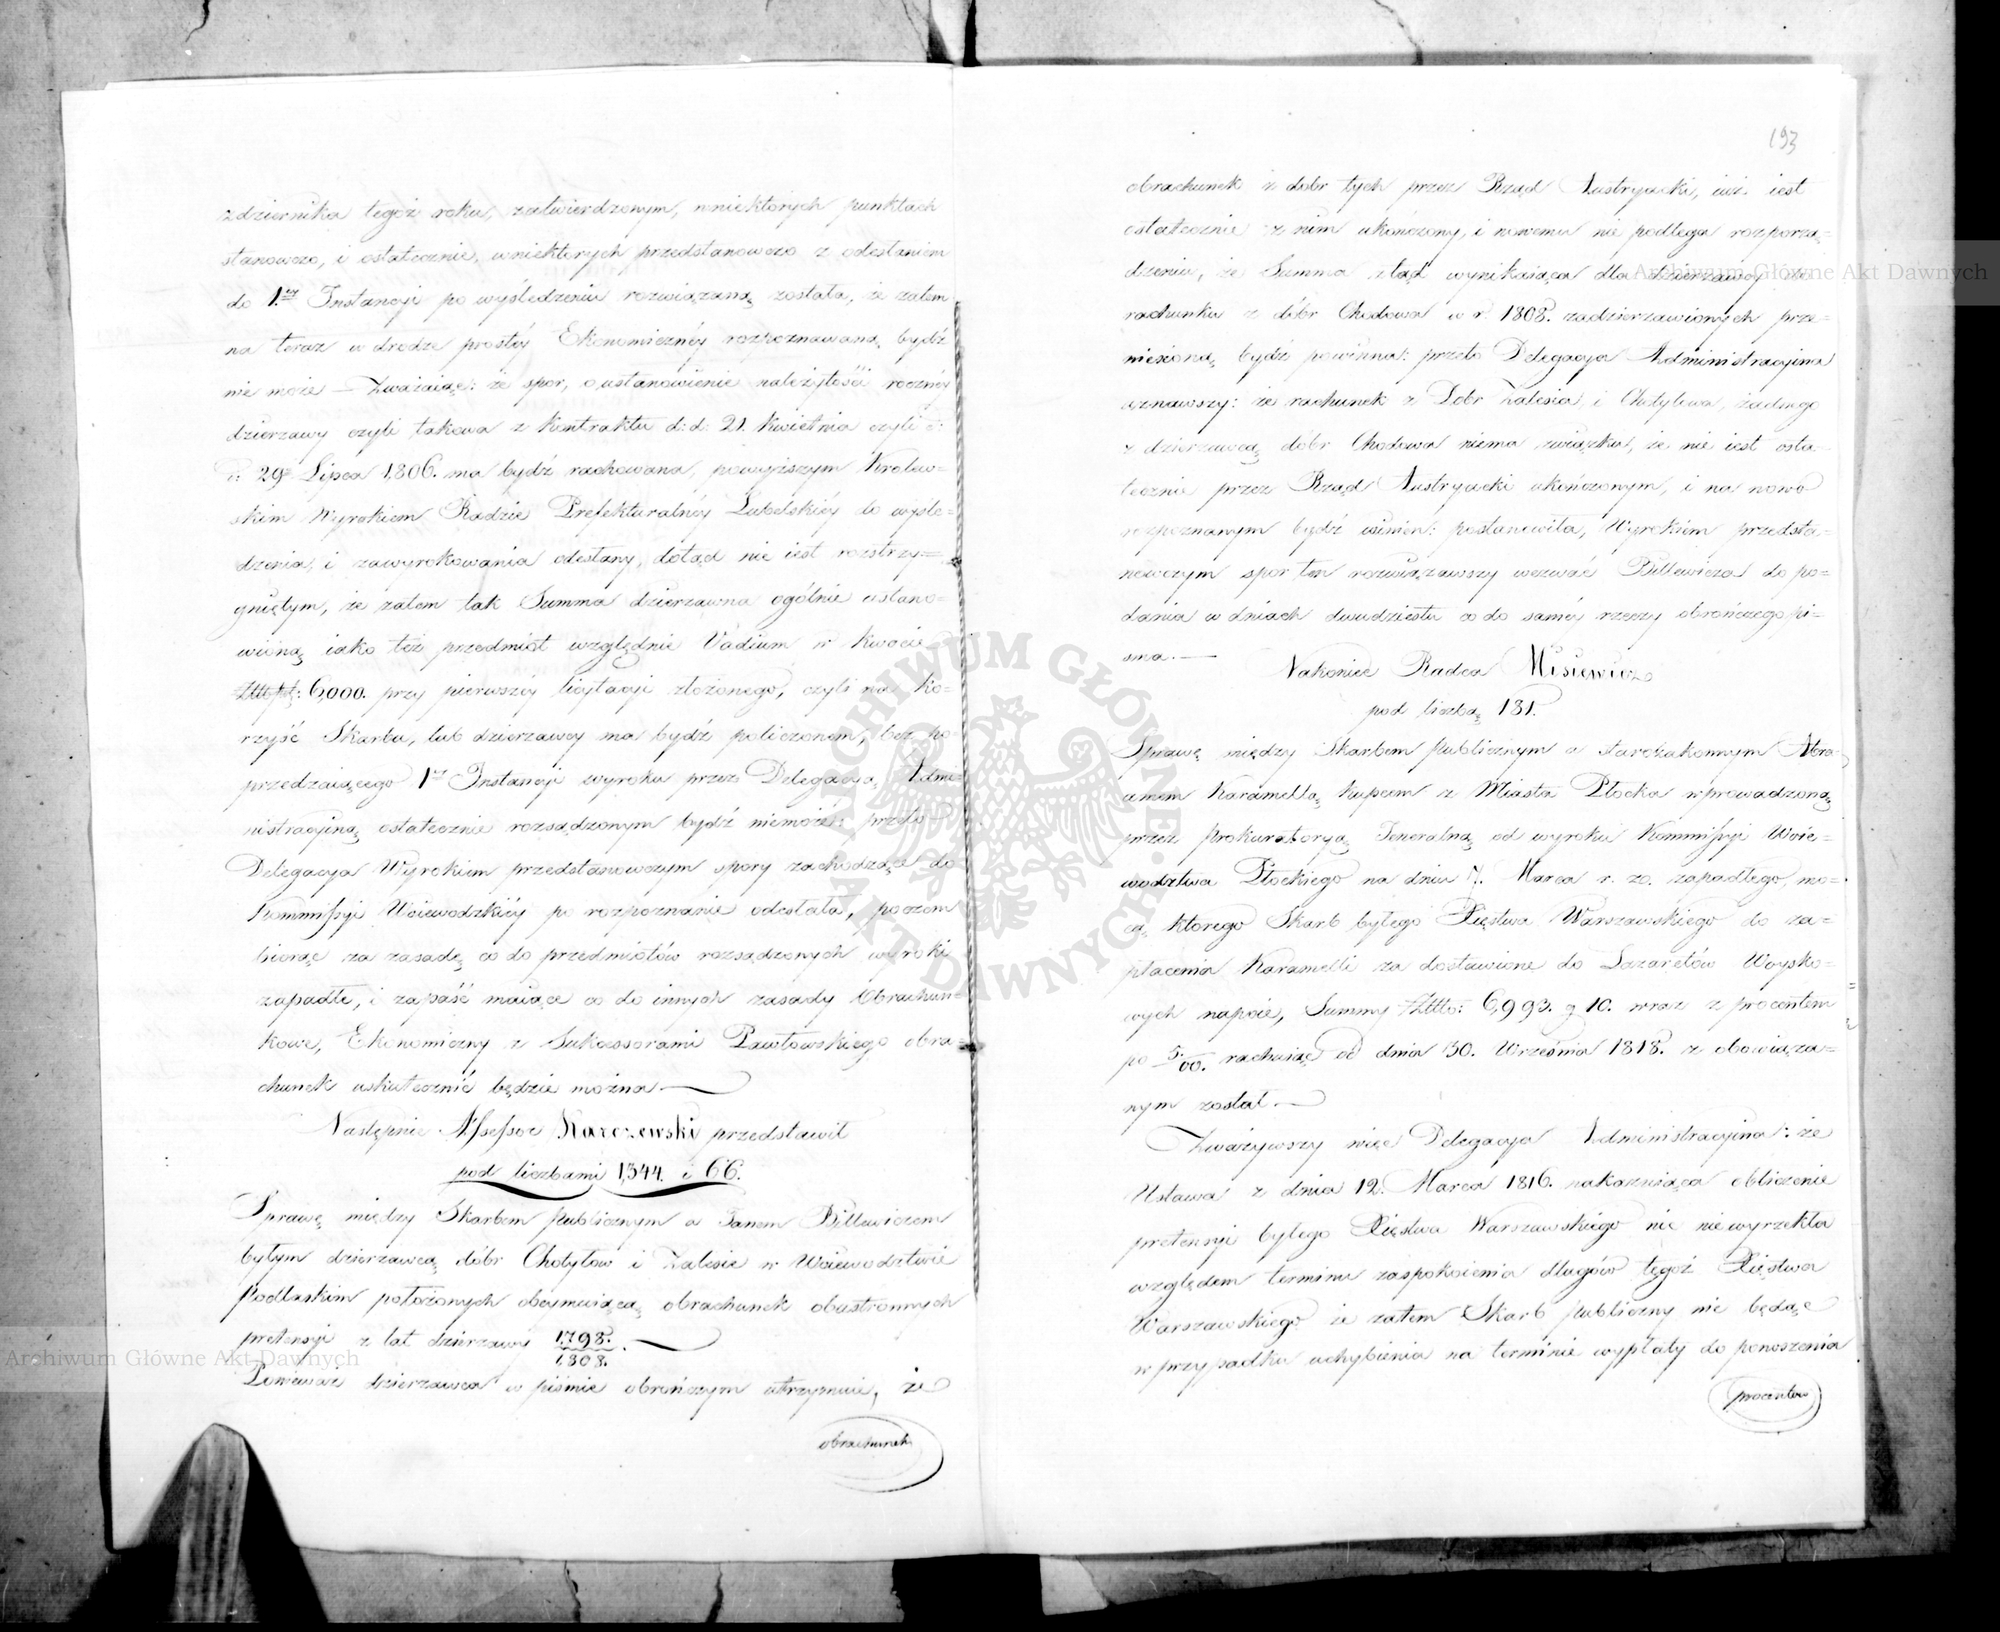 zdziernika tegoż roku, zatwierdzonym, w niektorych punktach
stanowczo, i ostatecznie, w niekterych przedstanowczo z odesłaniem
do 1.ey Instancyi po wyśledzeniu rozwiązaną została, że zatem
na teraz w drodze prostéy Ekonomicznéy rozpoznawaną bydź
nie może — Zważaiąc: że spor, o ustanowienie należytości rocznéy
dzierzawy czyli takowa z Kontraktu d: d: 21. Kwietnia czyli d:
d: 29 Lipca 1806. ma bydź rachowana, powyższym Krolew=
skim Wyrokiem Radzie Prefekturalnéy Lubelskiéy do wyśle=
dzenia, i zawyrokowania odesłany, dotąd nie iest rozstrzy=
gniętym, że zatem tak Summa dzierzawna ogólnie ustano=
wioną iako też przedmiot względnie Vadium w kwocie
6,000. przy pierwszéy licytacyi złożonego, czyli na ko=
rzyść Skarbu, lub dzierzawcy ma bydź policzonem, bez po
przedzaiącego 1ey Instancyi wyroku przez Delegacyą Admi=
nistracyiną ostatecznie rozsądzonym bydź niemoże: przeto
Delegacya Wyrokiem przedstanowczym spory zachodzące do
Kommissyi Woiewodzkiéy po rozpoznanie odesłała, poczem
biorąc za zasadę co do przedmiotów rozsądzonych wyroki
zapadłe, i zapaść maiące co do innych zasady Obrachun=
kowe, Ekonomiczny z Sukcessorami Pawłowskiego obra=
chunek uskutecznić będzie można —
Następnie Assessor Karczewski przedstawił
pod liczbami 1,344. i 66.
Sprawę między Skarbem Publicznym a Janem Billewiczem
byłym dzierzawcą dóbr Chotyłow i Zalesie w Woiewodztwie
Podlaskim położonych obeymuiącą obrachunek obustronnych
pretensyi z lat dzierzawy 1798.
1808.
Ponieważ dzierzawca w piśmie obrończym utrzymuie, że
obrachunek
193
obrachunek z dobr tych przez Rząd Austryacki, iuż iest
ostatecznie z nim ukończony, i nowemu nie podlega rozporzą=
dzeniu, że Summa ztąd wynikaiąca dla dzierzawcy do
rachunku z dóbr Chodowa w r. 1808. zadzierzawionych prze=
niesioną bydź powinna: przeto Delegacya Administracyina
uznawszy: że rachunek z Dobr Zalesia i Chotyłowa, żadnego
z dzierzawcą dóbr Chodowa niema związku, że nie iest osta
tecznie przez Rząd Austryacki ukończonym, i na nowo
rozpoznanym bydź winien: postanowiła, Wyrokiem przedsta=
nowczym spor ten rozwiązawszy wezwać Billewicza do po=
dania w dniach dwudziestu co do saméy rzeczy obrończego pi=
sma. —
Nakoniec Radca Misiewicz
pod liczbą 181.
Sprawę między Skarbem Publicznym a starozakonnym Abra
amem Karamellą Kupcem z Miasta Płocka wprowadzoną
przez Prokuratoryą Jeneralną od wyroku Kommissyi Woie=
wodztwa Płockiego na dniu 7. Marca r. zo. zapadłego, mo=
cą ktorego Skarb byłego Xięstwa Warszawskiego do za=
płacenia Karamelli za dostawione do Lazaretów Woysko=
wych napoie, Summy Złtto: 6,993. g 10. wraz z procentem
po 5/00. rachuiąc od dnia 30. Września 1818. z obowiąza=
nym został —
Zważywszy więc Delegacya Administracyina: że
Ustawa z dnia 12. Marca 1816. nakazuiąca obliczenie
pretensyi byłego Xięstwa Warszawskiego nic niewyrzekła
względem terminu zaspokoienia długów tegoż Xięstwa
Warszawskiego że zatem Skarb Publiczny nie będąc
w przypadku uchybienia na terminie wypłaty do ponoszenia
procentow
Archiwum Główne Akt Dawnych
Archiwum Główne Akt Dawnych
ARCHIWUM GŁÓWNE AKT DAWNYCH